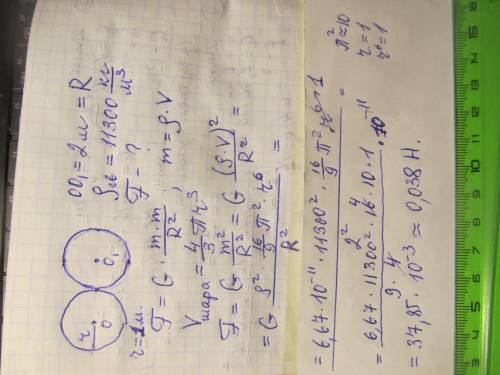 r
O
O₁
r = 1м.
OO₁ = 2м = R
ρсв = 11300 кг/м³
F - ?
F = G · m·m/R² ; m = ρ·V
Vшара = 4/3 π r³
F = G m²/R² = G (ρ·V)²/R² =
= G ρ² · 16/9 π² · r⁶ / R² =
= 6,67 · 10⁻¹¹ · 11300² · 16/9 π² r⁶ · 1 / 2² =
π² ≈ 10
r = 1
r⁶ = 1
= 6,67 · 11300² · 16 · 10 · 1 / 9 · 4 · 10⁻¹¹
= 37,85 · 10⁻³ ≈ 0,038 Н.